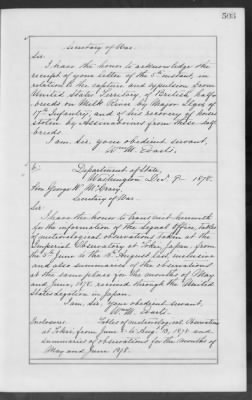 503
Secretary of War.
Sir:
I have the honor to acknowledge the
receipt of your letter of the 5th instant, in
relation to the capture and expulsion from
United States Territory of British half-
breeds on Milk River by Major Ilges of
17th Infantry, and of his recovery of horses
stolen by Assinaboins from these half
breeds.
I am, sir, your obedient servant,
Wm M. Evarts.
Department of State,
Washington Dec. 9 1878.
Hon. George W. McCrary,
Secretary of War.
Sir:
I have the honor to transmit herewith
for the information of the Signal Office, tables
of meteorological observations taken at the
Imperial Observatory at Tokei, Japan, from
the 5th June to the 13th August last, inclusive
and also summaries of the observations
at the same place for the months of May
and June, 1878, received through the United
States Legation in Japan.
I am, sir, your obedient servant,
Wm M. Evarts.
Enclosures. Tables of meteorological Observations
at Tokei, from June 5 to Aug. 13, 1878 and
summaries of observations for the months of
May and June 1878.